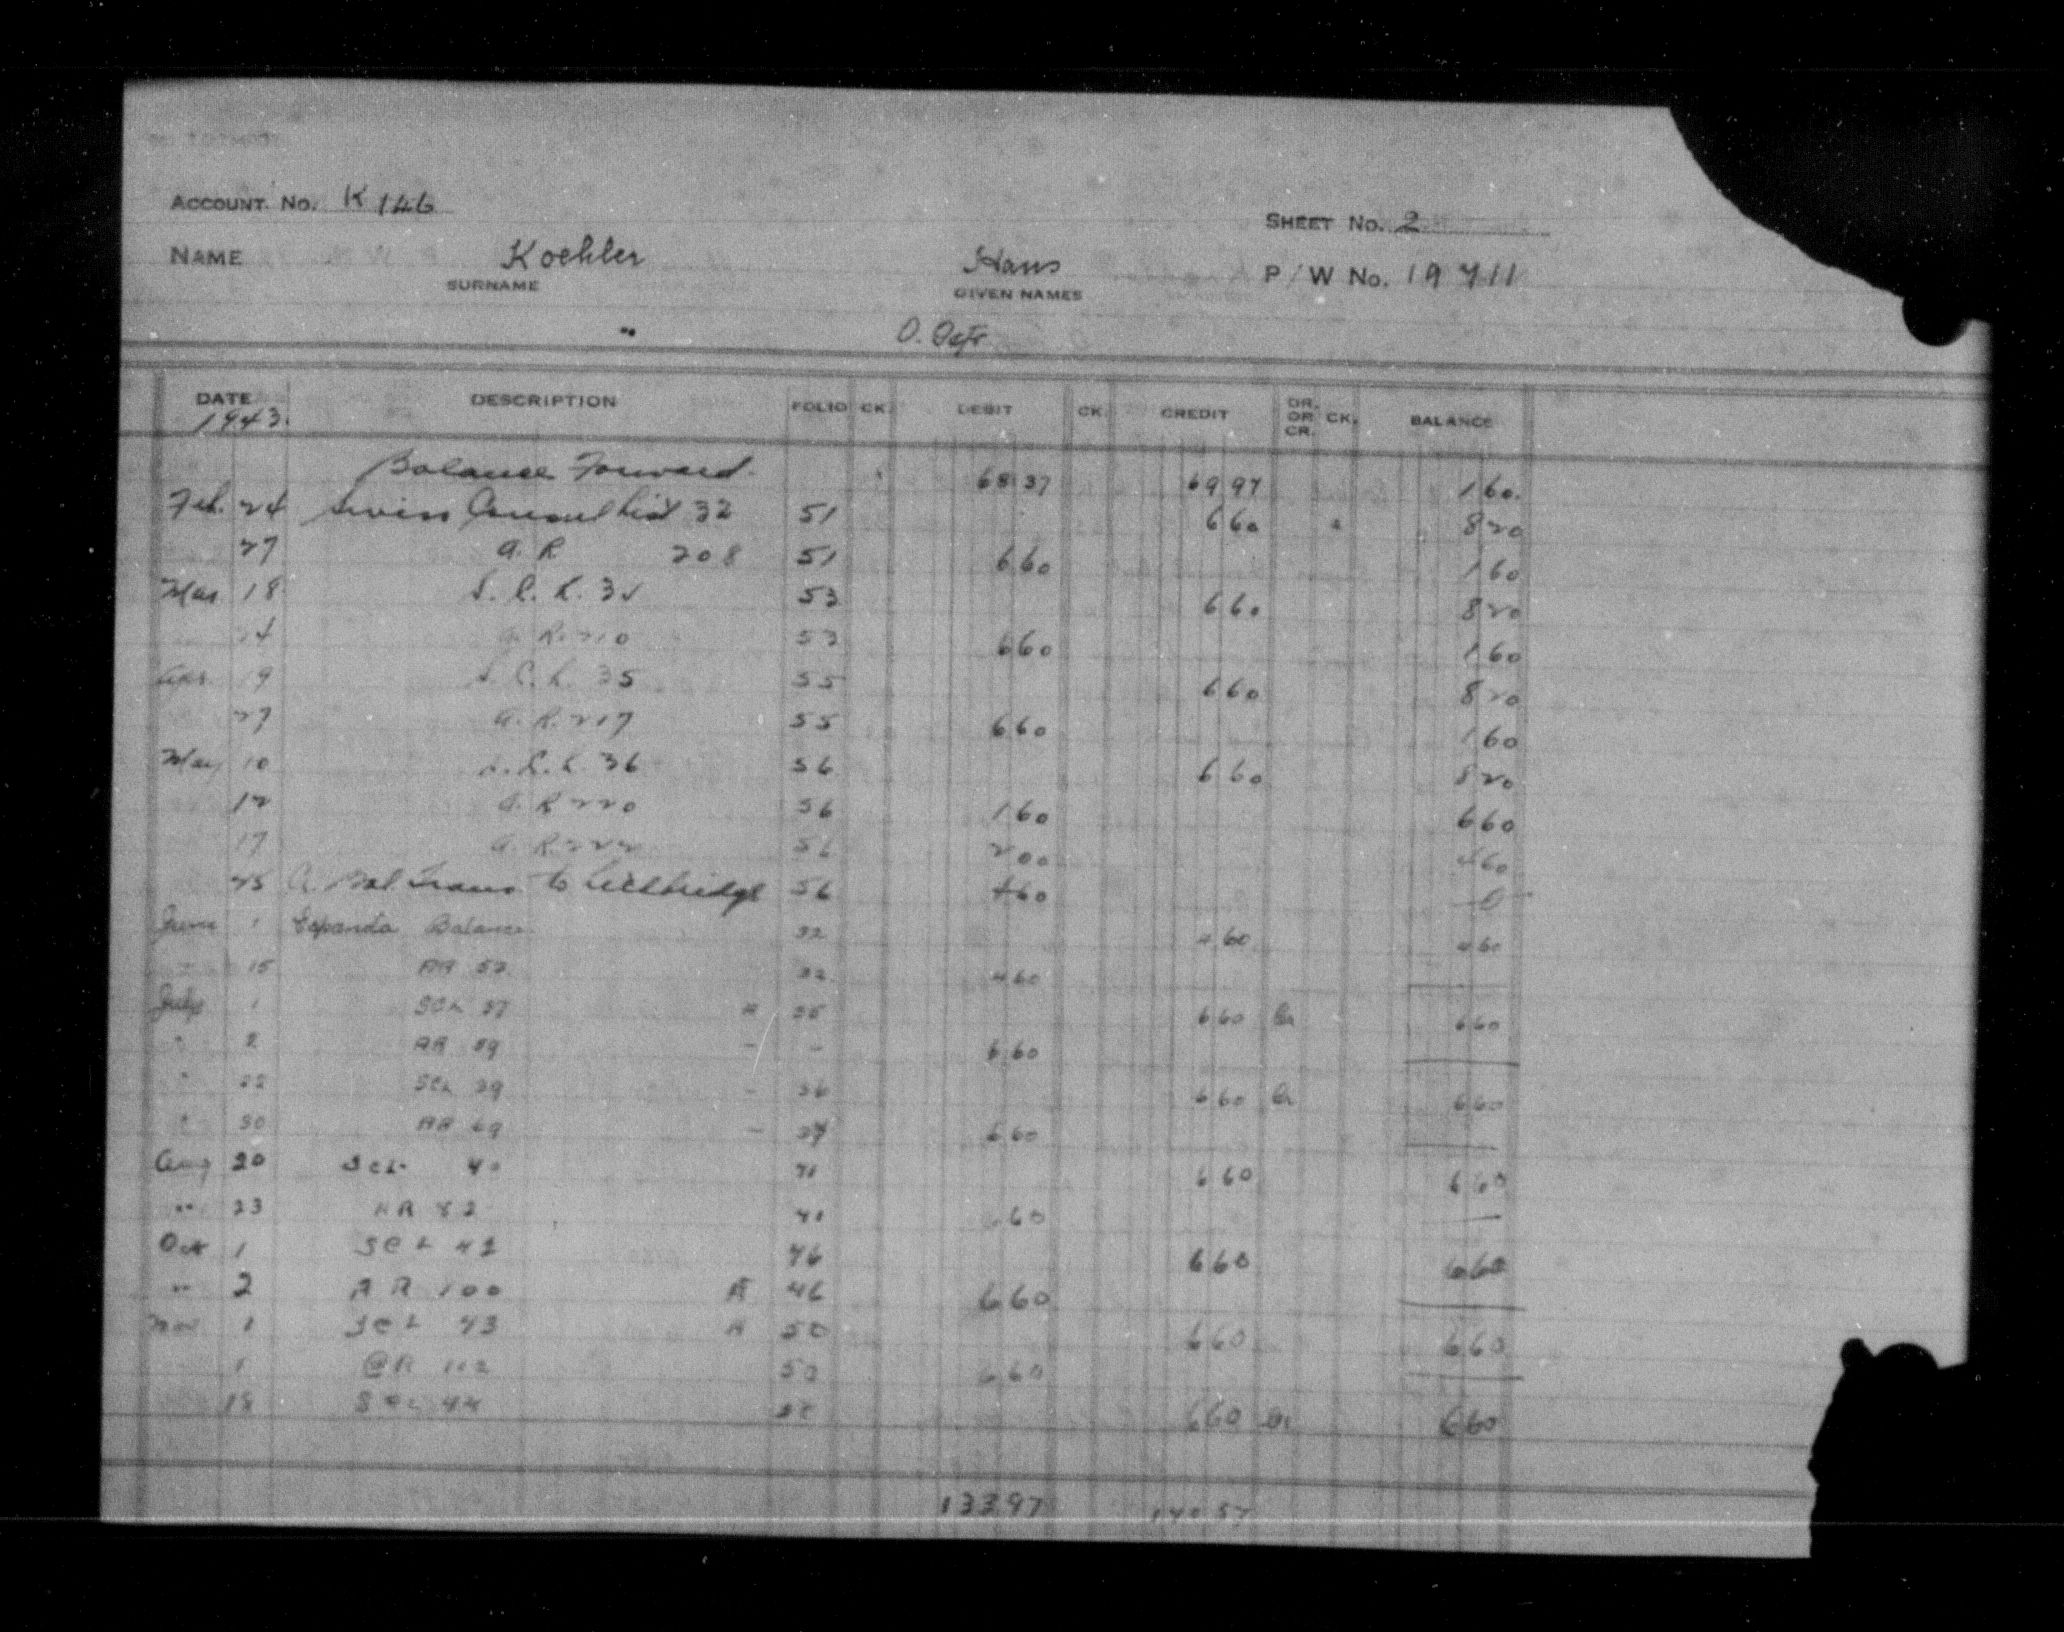 ACCOUNT No. K 146
SHEET No. 2
NAME Koehler Hans P/W No. 19711
SURNAME GIVEN NAMES
O. Gefr.
DATE DESCRIPTION FOLIO CK. DEBIT CK. CREDIT DR. OR CR. CK. BALANCE
1943.
Balance Forward. 68 37 69 97 1 60.
Feb. 24 Swiss Consul List 32 51 6 60 8 20
27 A. R 208 51 6 60 1 60
Mar 18 S. C. L. 53 6 60 8 20
24 A. R. 210 53 6 60 1 60
Apr. 19 S. C. L. 35 55 6 60 8 20
27 A. R. 217 55 6 60 1 60
May 10 S. C. L. 36 56 6 60 8 20
12 A. R 220 56 1 60 6 60
17 A. R. 222 56 2 00 4 60
25 Bal Trans. to Lethbridge 56 4 60 0
June 1 Balance 32 4 60 4 60
15 AR 32 4 60
July 1 SCL 37 35 6 60 Cr 6 60
" 2 AR 59 - - 6 60
" 22 SCL 39 - 36 6 60 Cr 6 60
" 30 AR 69 - 37 6 60
Aug 20 SCL 40 41 6 60 6 60
" 23 AR 82 41 6 60
Oct 1 SCL 42 46 6 60 6 60
" 2 AR 100 A 46 6 60
Nov 1 SCL 43 A 50 6 60 6 60
1 AR 112 50 6 60
18 SCL 44 6 60 Cr 6 60
133 97 140 57